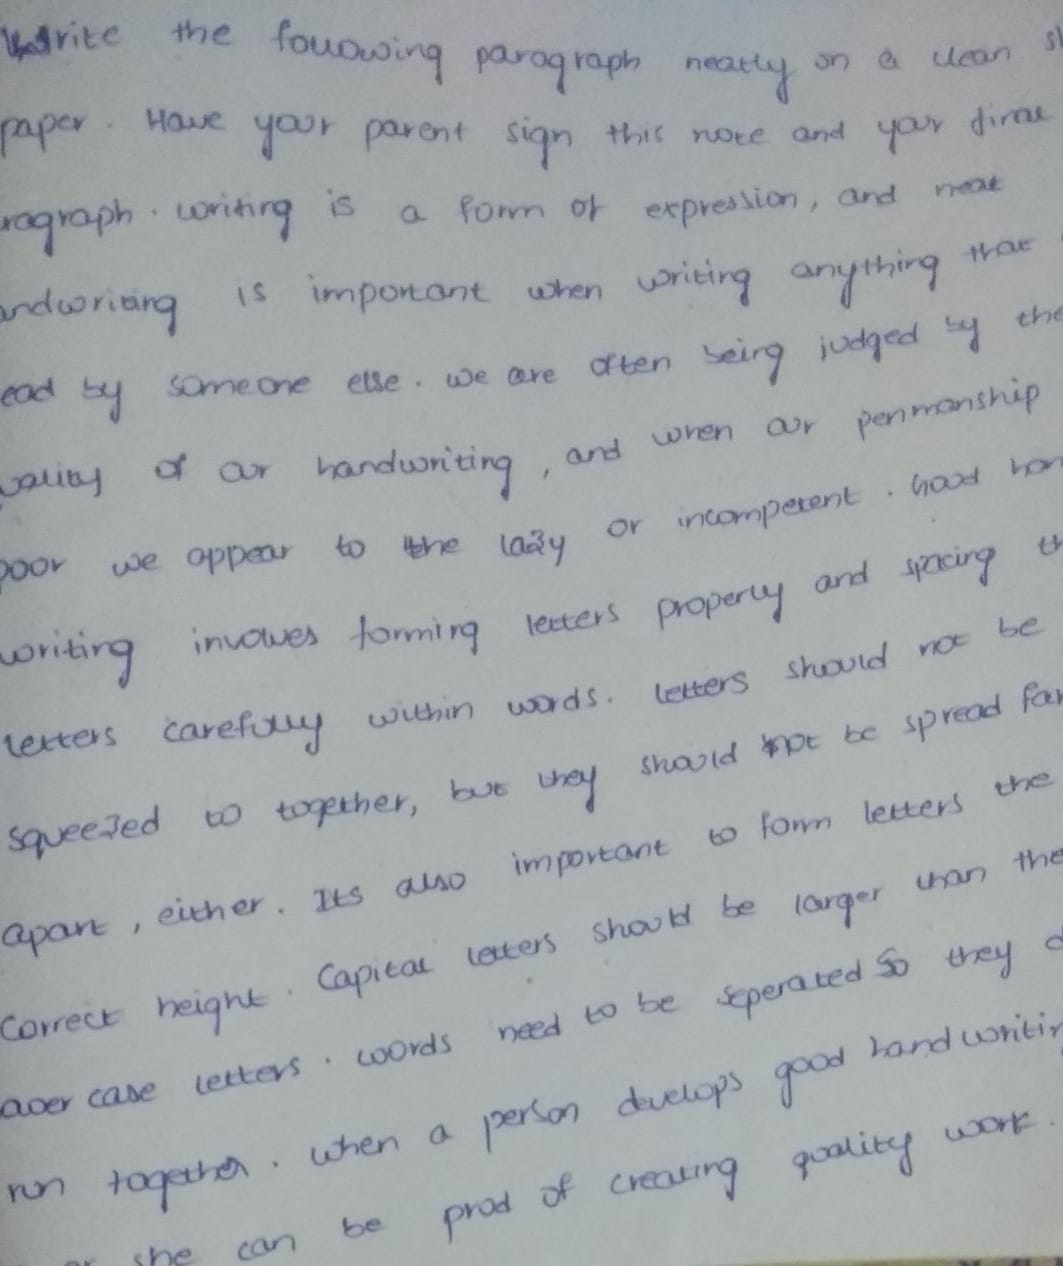 Write the following paragraph neatly on a clean
paper. Have your parent sign this note and your final
ragraph. writing is a form of expression, and neat
andwriting is important when writing anything that
ead by someone else. we are often being judged by the
uality of our handwriting, and when our penmanship
poor we appear to the lazy or incompetent. Good han
writing involves forming letters properly and spacing th
letters carefully within words. letters should not be
squeezed to together, but they should not be spread far
apart, either. Its also important to form letters the
correct height. Capital letters should be larger than the
ower case letters. words need to be seperated so they d
run together. when a person develops good handwritin
she can be prod of creating quality work.